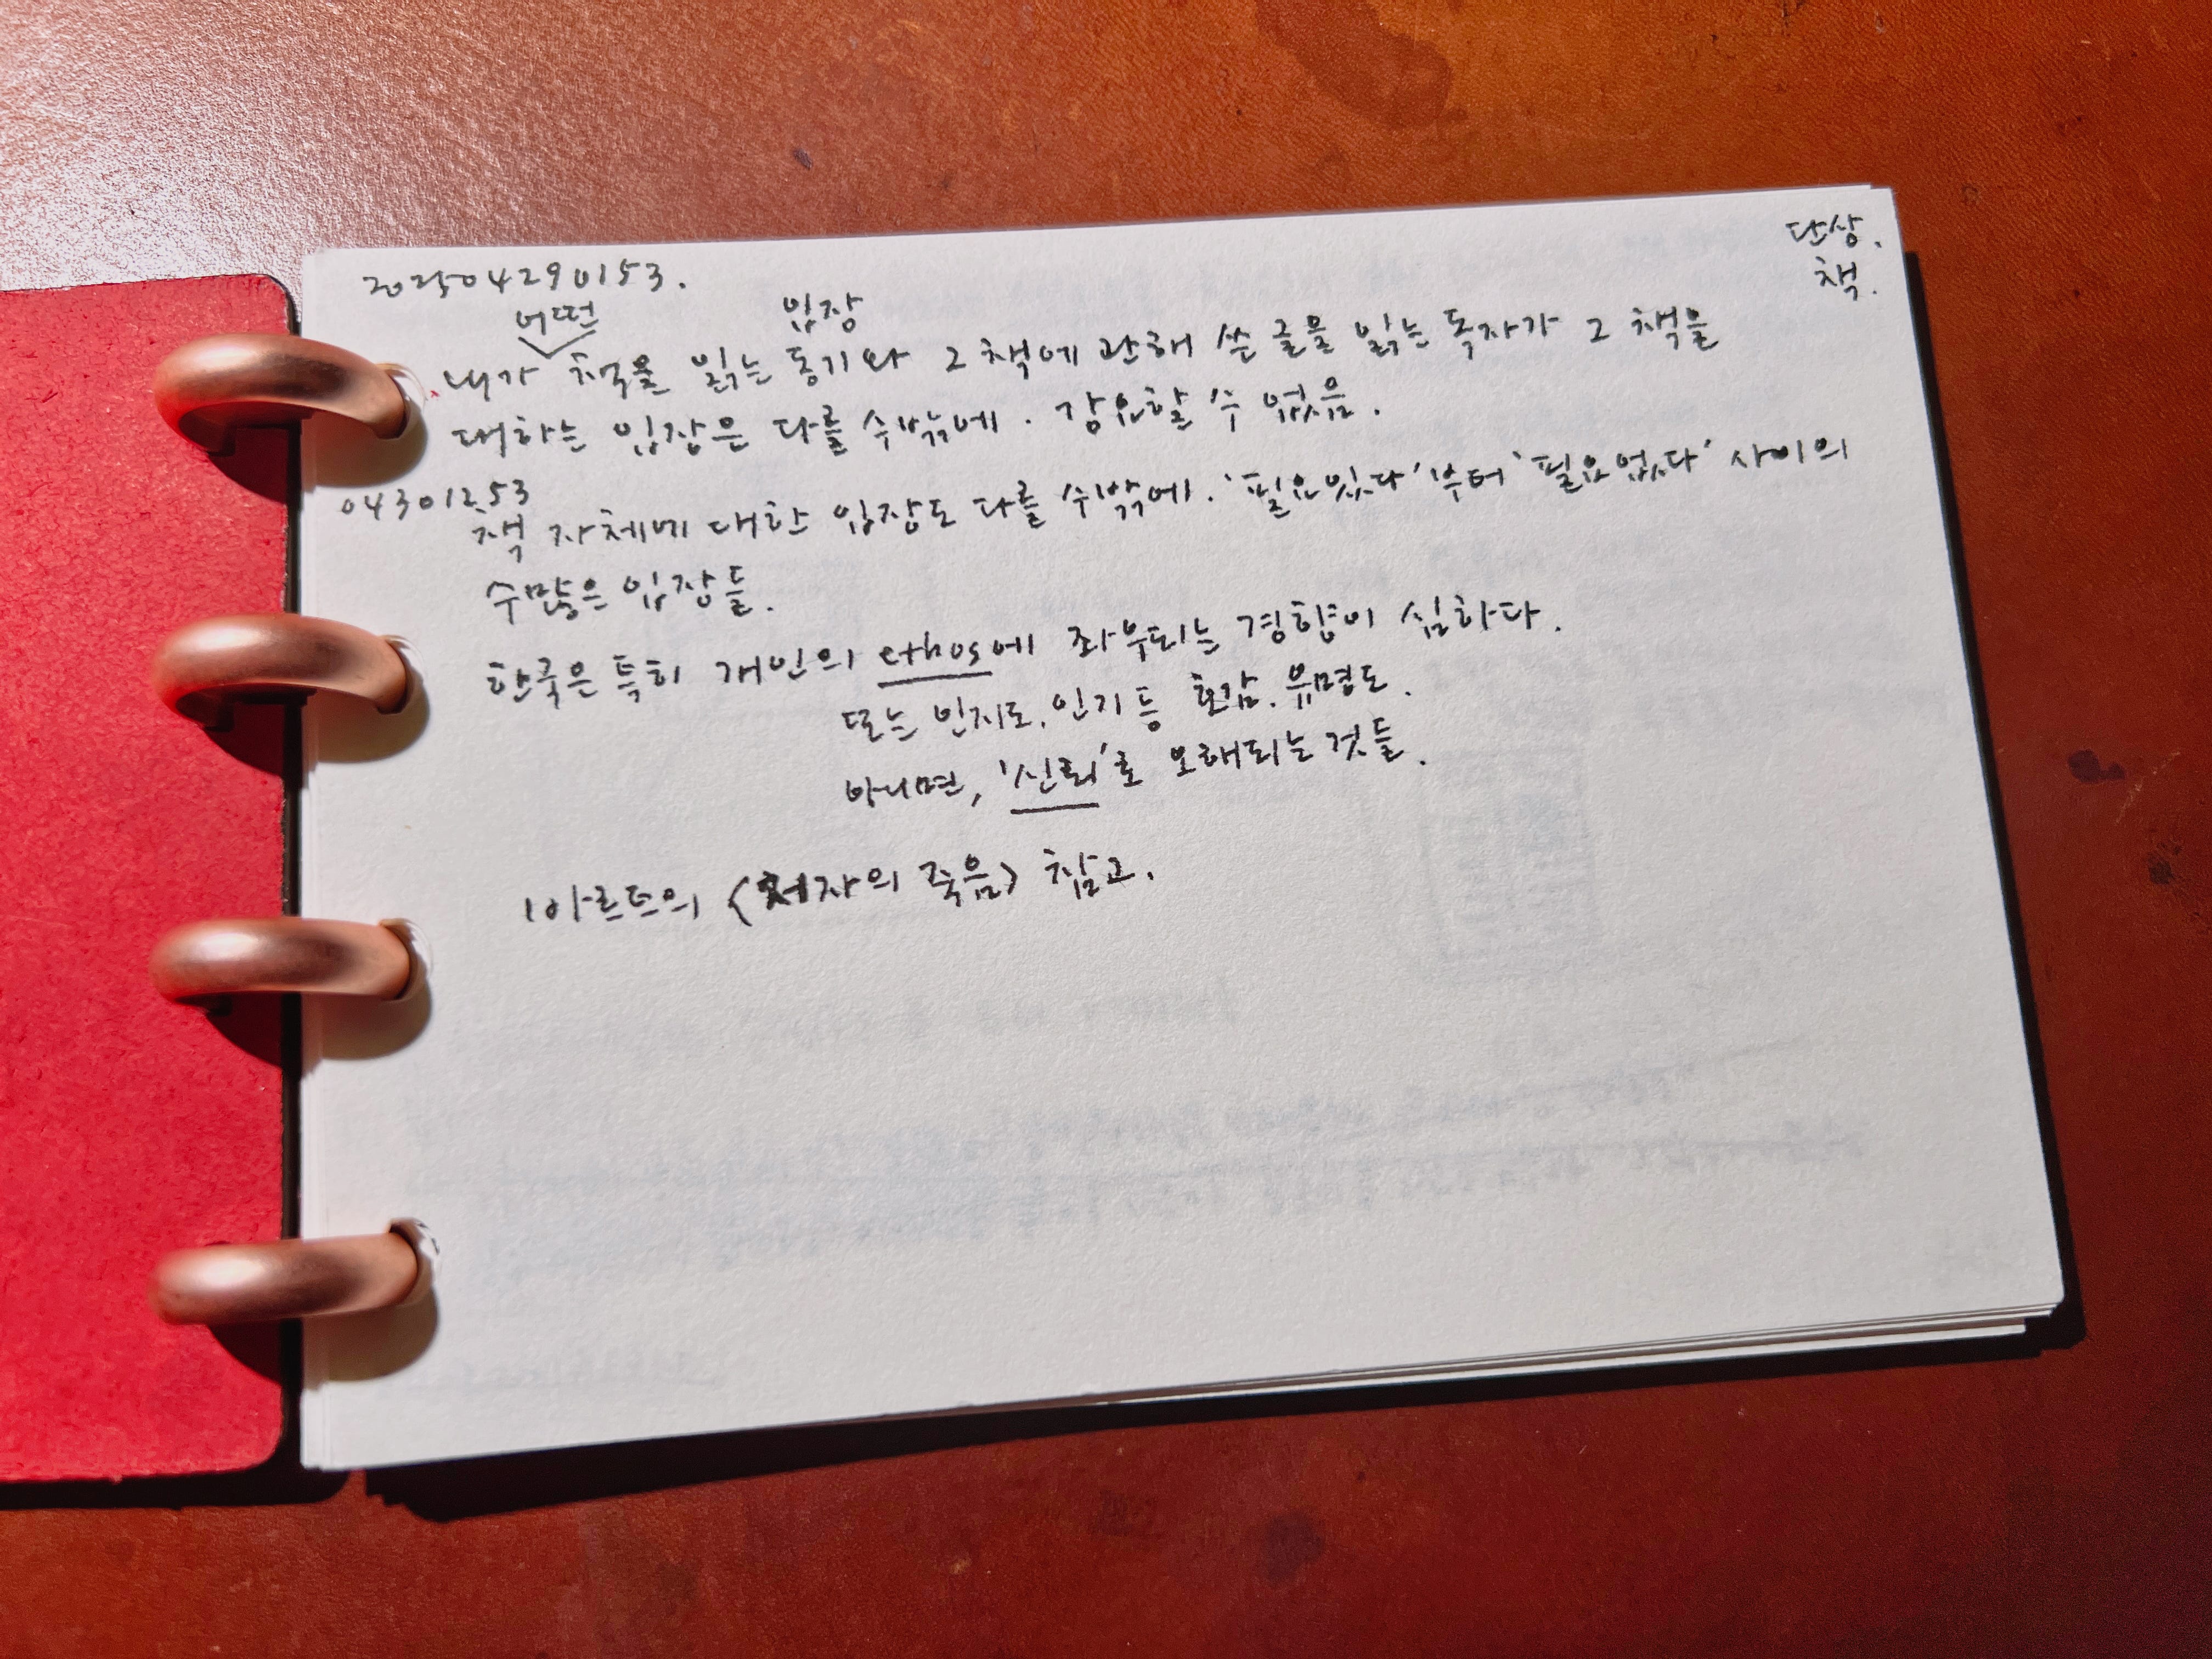 단상.
책.
202504290153.
어떤
입장
내가 책을 읽는 동기와 그 책에 관해 쓴 글을 읽는 독자가 그 책을
대하는 입장은 다를 수밖에. 강요할 수 없음.
04301253
책 자체에 대한 입장도 다를 수밖에. '필요있다'부터 '필요없다' 사이의
수많은 입장들.
한국은 특히 개인의 ethos에 좌우되는 경향이 심하다.
또는 인지도, 인기 등 호감. 유명도.
아니면, '신뢰'로 오해되는 것들.
바르트의 <저자의 죽음> 참고.